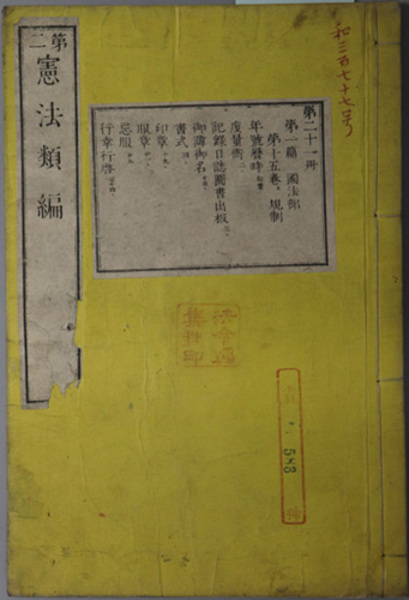 第二
憲法類編
第二十一冊
第一篇 國法部
第十五卷 規制
年號曆時
度量衡 二
記錄日誌圖書出板
御諱御名
書式
印章
服章
忌服
行幸行啓
和三百七十七号
法令
集
印
5×8